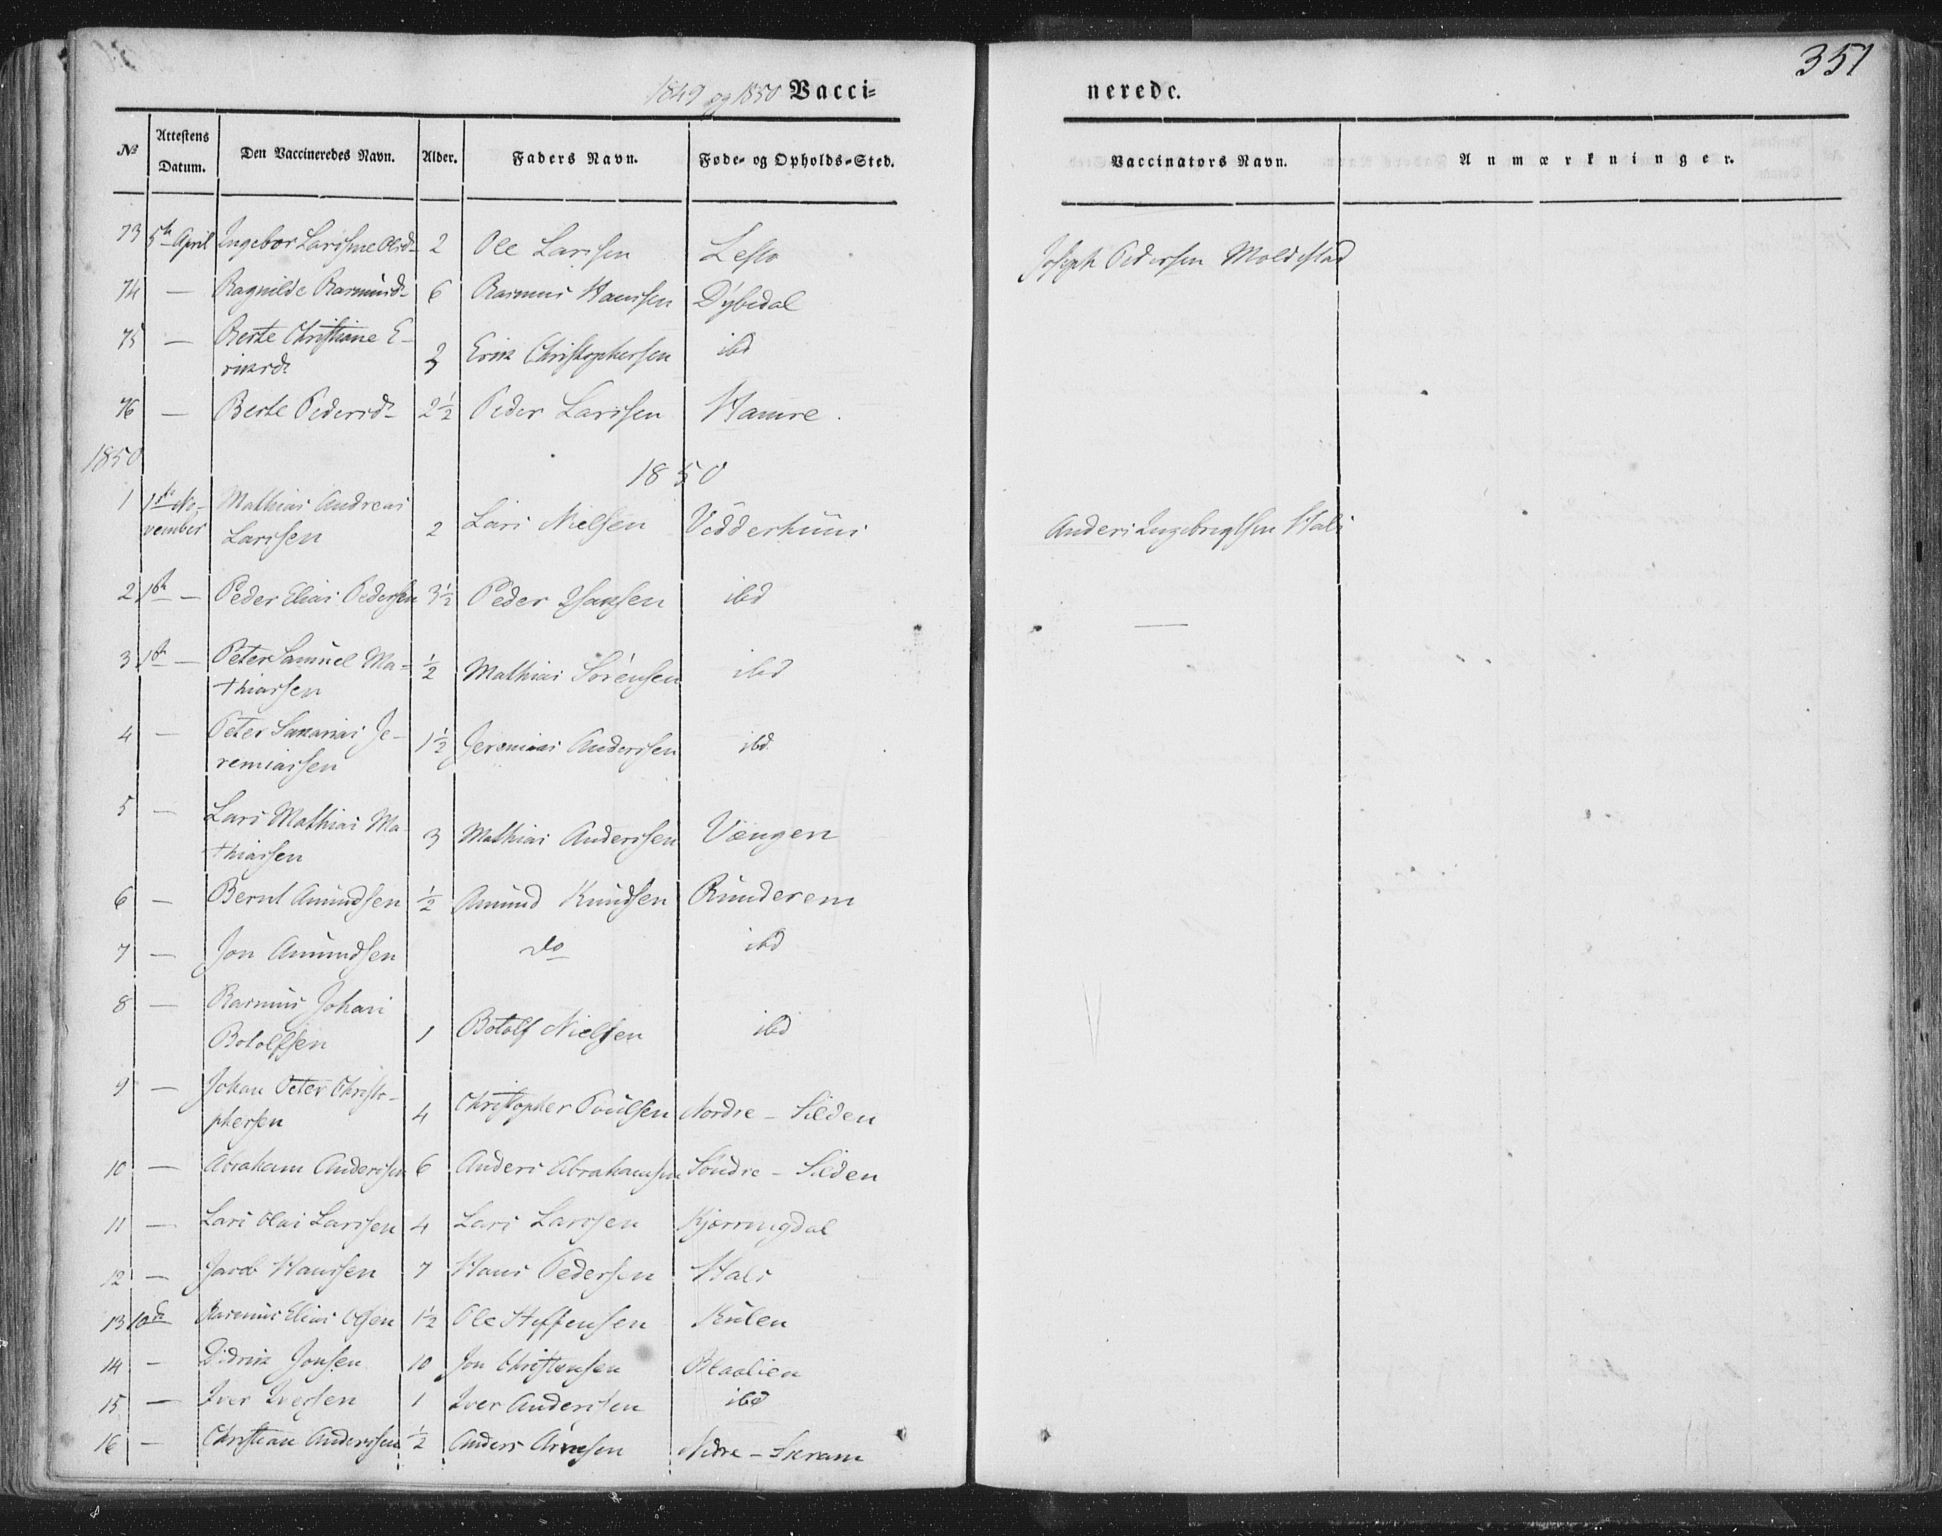 351
1849 og 1850 Vacci=
nerede.
№ Attestens Datum. Den Vaccineredes Navn. Alder. Faders Navn. Føde- og Opholds-Sted. Vaccinators Navn. Anmærkninger.
73 5te April Ingebor Larsine Olsd. 2 Ole Larssen Leslo Joseph Pedersen Moldestad
74 — Ragnilde Rasmusd. 6 Rasmus Hanssen Dybedal
75 — Berte Christiane E-
riksd. 3 Erik Christophersen ibd
76 — Berte Pedersd. 2½ Peder Larssen Hamre.
1850
1850
1 1ste No- Mathias Andreas
vember Larssen 2 Lars Nielsen Vedderhuus Anders Ingebrigtsen Hals
2 1ste — Peder Elias Pedersen 3½ Peder Hansen ibd —
3 1ste — Peter Samuel Ma-
thiassen ½ Mathias Sørensen ibd
4 — Peter Sakarias Je-
remiassen 1½ Jeremias Anderssen ibd
5 — Lars Mathias Ma-
thiassen 3 Mathias Anderssen Vengen
6 — Bernt Amundsen ½ Amund Knudsen Runderem
7 — Jon Amundsen do ibd
8 — Rasmus Johan
Botolfsen 1 Botolf Nielsen ibd
9 — Johan Peter Christo-
phersen 4 Christopher Poulsen Nordre - Silden
10 — Abraham Anderssen 6 Anders Abrahamsen Søndre - Silden
11 — Lars Olai Larssen 4 Lars Larssen Kjørringdal
12 — Jacob Hanssen 7 Hans Pedersen Hals
13 10de Rasmus Elias Olsen 1½ Ole Steffensen Kulen
14 — Didrik Jonsen 10 Jon Christensen
15 — Iver Iversen 1 Iver Anderssen ibd
16 — Christian Anderssen ½ Anders Arnesen Nedre - Skram